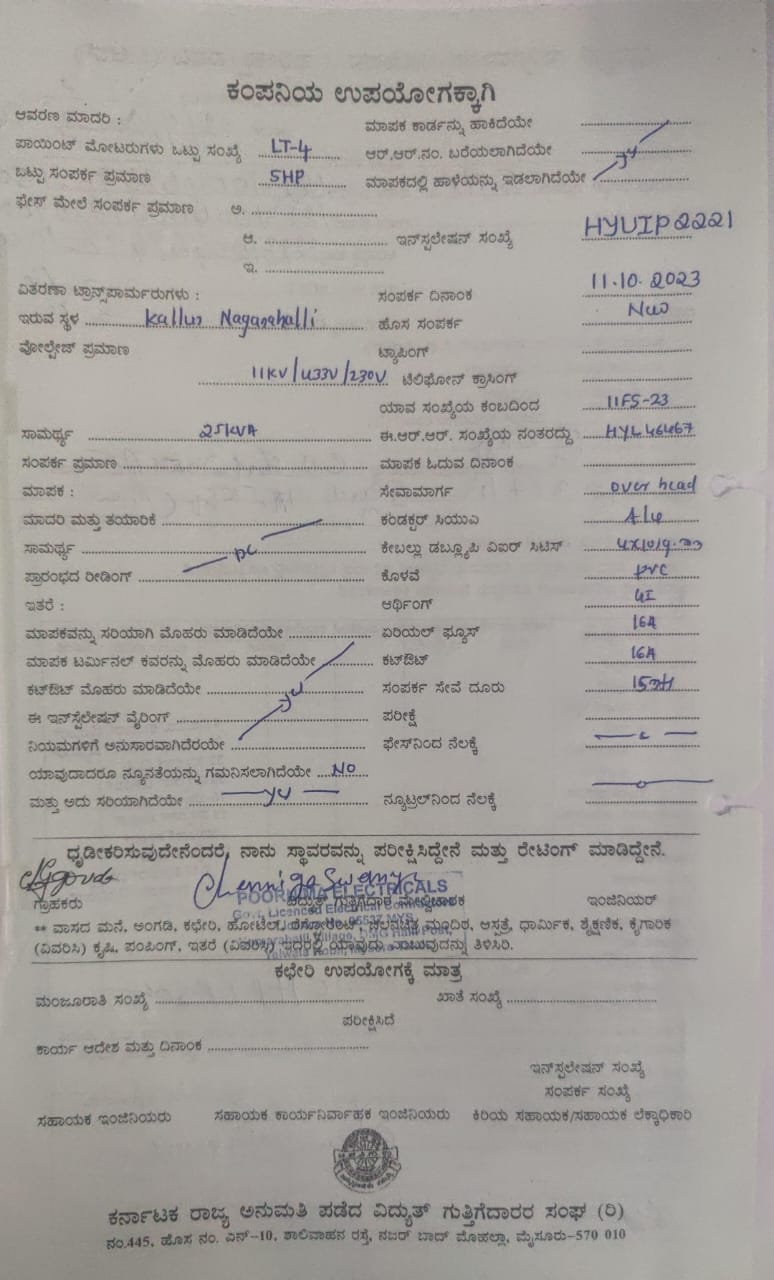 ಕಂಪನಿಯ ಉಪಯೋಗಕ್ಕಾಗಿ
ಆವರಣ ಮಾದರಿ : ಮಾಪಕ ಕಾರ್ಡನ್ನು ಹಾಕಿದೆಯೇ
ಪಾಯಿಂಟ್ ಮೋಟರುಗಳು ಒಟ್ಟು ಸಂಖ್ಯೆ LT-4 ಆರ್.ಆರ್.ನಂ. ಬರೆಯಲಾಗಿದೆಯೇ
ಒಟ್ಟು ಸಂಪರ್ಕ ಪ್ರಮಾಣ 5HP ಮಾಪಕದಲ್ಲಿ ಹಾಳೆಯನ್ನು ಇಡಲಾಗಿದೆಯೇ
ಫೇಸ್ ಮೇಲೆ ಸಂಪರ್ಕ ಪ್ರಮಾಣ ಅ.
ಆ. ಇನ್‌ಸ್ಟಲೇಷನ್ ಸಂಖ್ಯೆ HYUIP2221
ಇ.
ವಿತರಣಾ ಟ್ರಾನ್ಸ್‌ಫಾರ್ಮರುಗಳು : ಸಂಪರ್ಕ ದಿನಾಂಕ 11.10.2023
ಇರುವ ಸ್ಥಳ Kallur Naganahalli ಹೊಸ ಸಂಪರ್ಕ New
ವೋಲ್ಟೇಜ್ ಪ್ರಮಾಣ ಟ್ಯಾಪಿಂಗ್
11KV/433V/230V ಟೆಲಿಫೋನ್ ಕ್ರಾಸಿಂಗ್
ಯಾವ ಸಂಖ್ಯೆಯ ಕಂಬದಿಂದ 11FS-23
ಸಾಮರ್ಥ್ಯ 25KVA ಈ.ಆರ್.ಆರ್. ಸಂಖ್ಯೆಯ ನಂತರದ್ದು HYL46467
ಸಂಪರ್ಕ ಪ್ರಮಾಣ ಮಾಪಕ ಓದುವ ದಿನಾಂಕ
ಮಾಪಕ : ಸೇವಾಮಾರ್ಗ over head
ಮಾದರಿ ಮತ್ತು ತಯಾರಿಕೆ ಕಂಡಕ್ಟರ್ ಸಿಯುಎ
ಸಾಮರ್ಥ್ಯ ಕೇಬಲ್ಲು ಡಬ್ಲ್ಯೂಪಿ ವಿಐಆರ್ ಸಿಟಿಸ್
ಪ್ರಾರಂಭದ ರೀಡಿಂಗ್ ಕೊಳವೆ PVC
ಇತರೆ : ಆರ್ಥಿಂಗ್ GI
ಮಾಪಕವನ್ನು ಸರಿಯಾಗಿ ಮೊಹರು ಮಾಡಿದೆಯೇ ಏರಿಯಲ್ ಫ್ಯೂಸ್ 16A
ಮಾಪಕ ಟರ್ಮಿನಲ್ ಕವರನ್ನು ಮೊಹರು ಮಾಡಿದೆಯೇ ಕಟ್‌ಔಟ್ 16A
ಕಟ್‌ಔಟ್ ಮೊಹರು ಮಾಡಿದೆಯೇ ಸಂಪರ್ಕ ಸೇವೆ ದೂರು
ಈ ಇನ್‌ಸ್ಟೆಲೇಷನ್ ವೈರಿಂಗ್ ಪರೀಕ್ಷೆ
ನಿಯಮಗಳಿಗೆ ಅನುಸಾರವಾಗಿದೆರಯೇ ಫೇಸ್‌ನಿಂದ ನೆಲಕ್ಕೆ
ಯಾವುದಾದರೂ ನ್ಯೂನತೆಯನ್ನು ಗಮನಿಸಲಾಗಿದೆಯೇ NO
ಮತ್ತು ಅದು ಸರಿಯಾಗಿದೆಯೇ ನ್ಯೂಟ್ರಲ್‌ನಿಂದ ನೆಲಕ್ಕೆ
ಧೃಡೀಕರಿಸುವುದೇನೆಂದರೆ, ನಾನು ಸ್ಥಾವರವನ್ನು ಪರೀಕ್ಷಿಸಿದ್ದೇನೆ ಮತ್ತು ರೇಟಿಂಗ್ ಮಾಡಿದ್ದೇನೆ.
Chennigaswamy
POORNIMA ELECTRICALS
ಗ್ರಾಹಕರು ವಿದ್ಯುತ್ ಗುತ್ತಿಗೆದಾರ ಮೇಲ್ವಿಚಾರಕ ಇಂಜಿನಿಯರ್
Govt. Licenced Electrical
** ವಾಸದ ಮನೆ, ಅಂಗಡಿ, ಕಛೇರಿ, ಹೋಟೆಲ್, ರೆಸ್ಟೋರೆಂಟ್, ಚಲನಚಿತ್ರ ಮಂದಿರ, ಆಸ್ಪತ್ರೆ, ಧಾರ್ಮಿಕ, ಶೈಕ್ಷಣಿಕ, ಕೈಗಾರಿಕ
(ವಿವರಿಸಿ) ಕೃಷಿ, ಪಂಪಿಂಗ್, ಇತರೆ (ವಿವರಿಸಿ) ಇದರಲ್ಲಿ ಯಾವುದು ಎಂಬುವುದನ್ನು ತಿಳಿಸಿರಿ.
ಕಛೇರಿ ಉಪಯೋಗಕ್ಕೆ ಮಾತ್ರ
ಮಂಜೂರಾತಿ ಸಂಖ್ಯೆ ಖಾತೆ ಸಂಖ್ಯೆ
ಪರೀಕ್ಷಿಸಿದೆ
ಕಾರ್ಯ ಆದೇಶ ಮತ್ತು ದಿನಾಂಕ
ಇನ್‌ಸ್ಟಲೇಷನ್ ಸಂಖ್ಯೆ
ಸಂಪರ್ಕ ಸಂಖ್ಯೆ
ಸಹಾಯಕ ಇಂಜಿನಿಯರು ಸಹಾಯಕ ಕಾರ್ಯನಿರ್ವಾಹಕ ಇಂಜಿನಿಯರು ಕಿರಿಯ ಸಹಾಯಕ/ಸಹಾಯಕ ಲೆಕ್ಕಾಧಿಕಾರಿ
ಕರ್ನಾಟಕ ರಾಜ್ಯ ಅನುಮತಿ ಪಡೆದ ವಿದ್ಯುತ್ ಗುತ್ತಿಗೆದಾರರ ಸಂಘ (ರಿ)
ನಂ.445, ಹೊಸ ನಂ. ಎನ್-10, ಶಾಲಿವಾಹನ ರಸ್ತೆ, ನಜರ್ ಬಾದ್ ಮೊಹಲ್ಲಾ, ಮೈಸೂರು-570 010